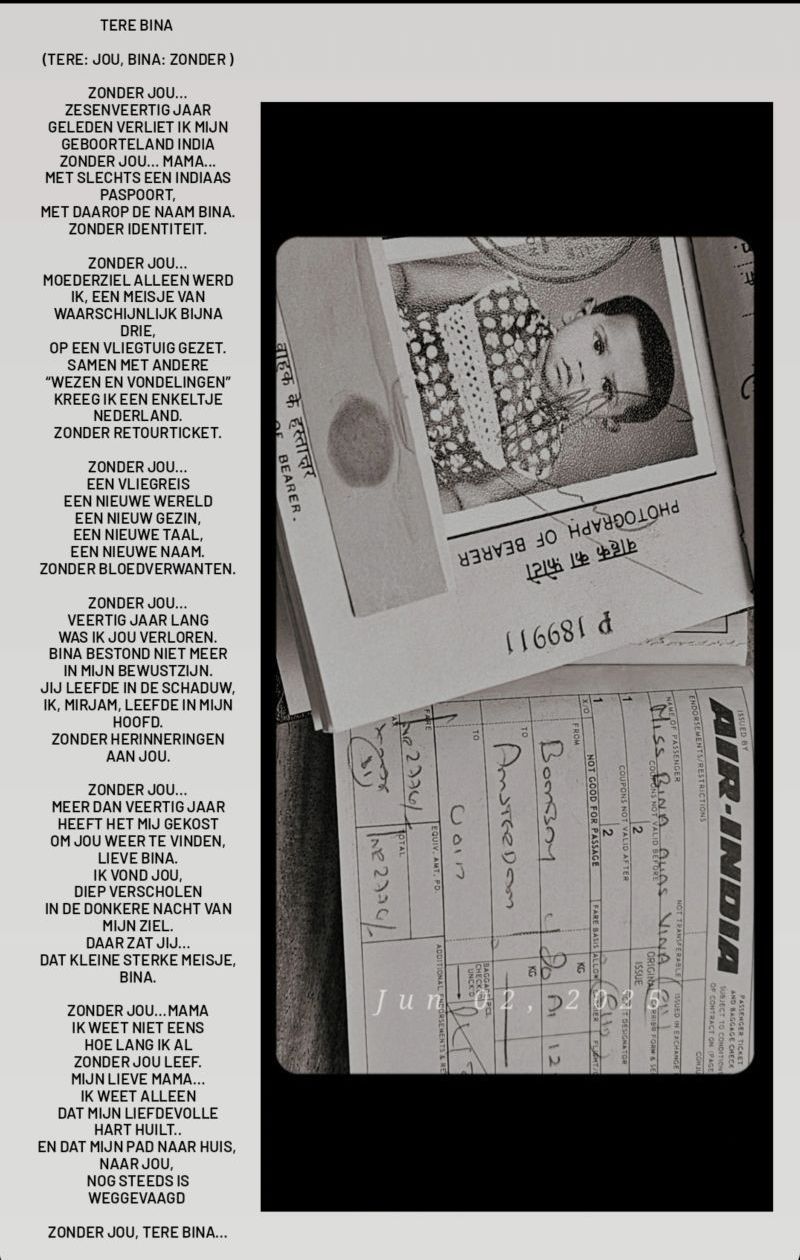 TERE BINA
(TERE: JOU, BINA: ZONDER )
ZONDER JOU...
ZESENVEERTIG JAAR
GELEDEN VERLIET IK MIJN
GEBOORTELAND INDIA
ZONDER JOU... MAMA...
MET SLECHTS EEN INDIAAS
PASPOORT,
MET DAAROP DE NAAM BINA.
ZONDER IDENTITEIT.
ZONDER JOU...
MOEDERZIEL ALLEEN WERD
IK, EEN MEISJE VAN
WAARSCHIJNLIJK BIJNA
DRIE,
OP EEN VLIEGTUIG GEZET.
SAMEN MET ANDERE
“WEZEN EN VONDELINGEN”
KREEG IK EEN ENKELTJE
NEDERLAND.
ZONDER RETOURTICKET.
ZONDER JOU...
EEN VLIEGREIS
EEN NIEUWE WERELD
EEN NIEUW GEZIN,
EEN NIEUWE TAAL,
EEN NIEUWE NAAM.
ZONDER BLOEDVERWANTEN.
ZONDER JOU...
VEERTIG JAAR LANG
WAS IK JOU VERLOREN.
BINA BESTOND NIET MEER
IN MIJN BEWUSTZIJN.
JIJ LEEFDE IN DE SCHADUW,
IK, MIRJAM, LEEFDE IN MIJN
HOOFD.
ZONDER HERINNERINGEN
AAN JOU.
ZONDER JOU...
MEER DAN VEERTIG JAAR
HEEFT HET MIJ GEKOST
OM JOU WEER TE VINDEN,
LIEVE BINA.
IK VOND JOU,
DIEP VERSCHOLEN
IN DE DONKERE NACHT VAN
MIJN ZIEL.
DAAR ZAT JIJ...
DAT KLEINE STERKE MEISJE,
BINA.
ZONDER JOU...MAMA
IK WEET NIET EENS
HOE LANG IK AL
ZONDER JOU LEEF.
MIJN LIEVE MAMA...
IK WEET ALLEEN
DAT MIJN LIEFDEVOLLE
HART HUILT..
EN DAT MIJN PAD NAAR HUIS,
NAAR JOU,
NOG STEEDS IS
WEGGEVAAGD
ZONDER JOU, TERE BINA...
वाहक के हस्ताक्षर
OF BEARER.
PHOTOGRAPH OF BEARER
वाहक का फोटो
P 189911
ISSUED BY
AIR-INDIA
PASSENGER TICKET
AND BAGGAGE CHECK
SUBJECT TO CONDITIONS
OF CONTRACT ON
ENDORSEMENTS/RESTRICTIONS
NAME OF PASSENGER
NOT TRANSFERABLE
ISSUED IN EXCHANGE
MISS BINA ALIAS VINA
COUPONS NOT VALID BEFORE
ORIGINAL
ISSUE
COUPONS NOT VALID AFTER
1
2
1
2
X/O
NOT GOOD FOR PASSAGE
FARE BASIS
ALLOW
FROM
BOMBAY
KG
TO
AMSTERDAM
KG
TO
VOID
BAGGAGE
CHECKED
UNCK'D
FARE
INR 2776/-
EQUIV. AMT. PD.
ADDITIONAL ENDORSEMENTS
TOTAL
INR 2776/-
Jun 02, 2025